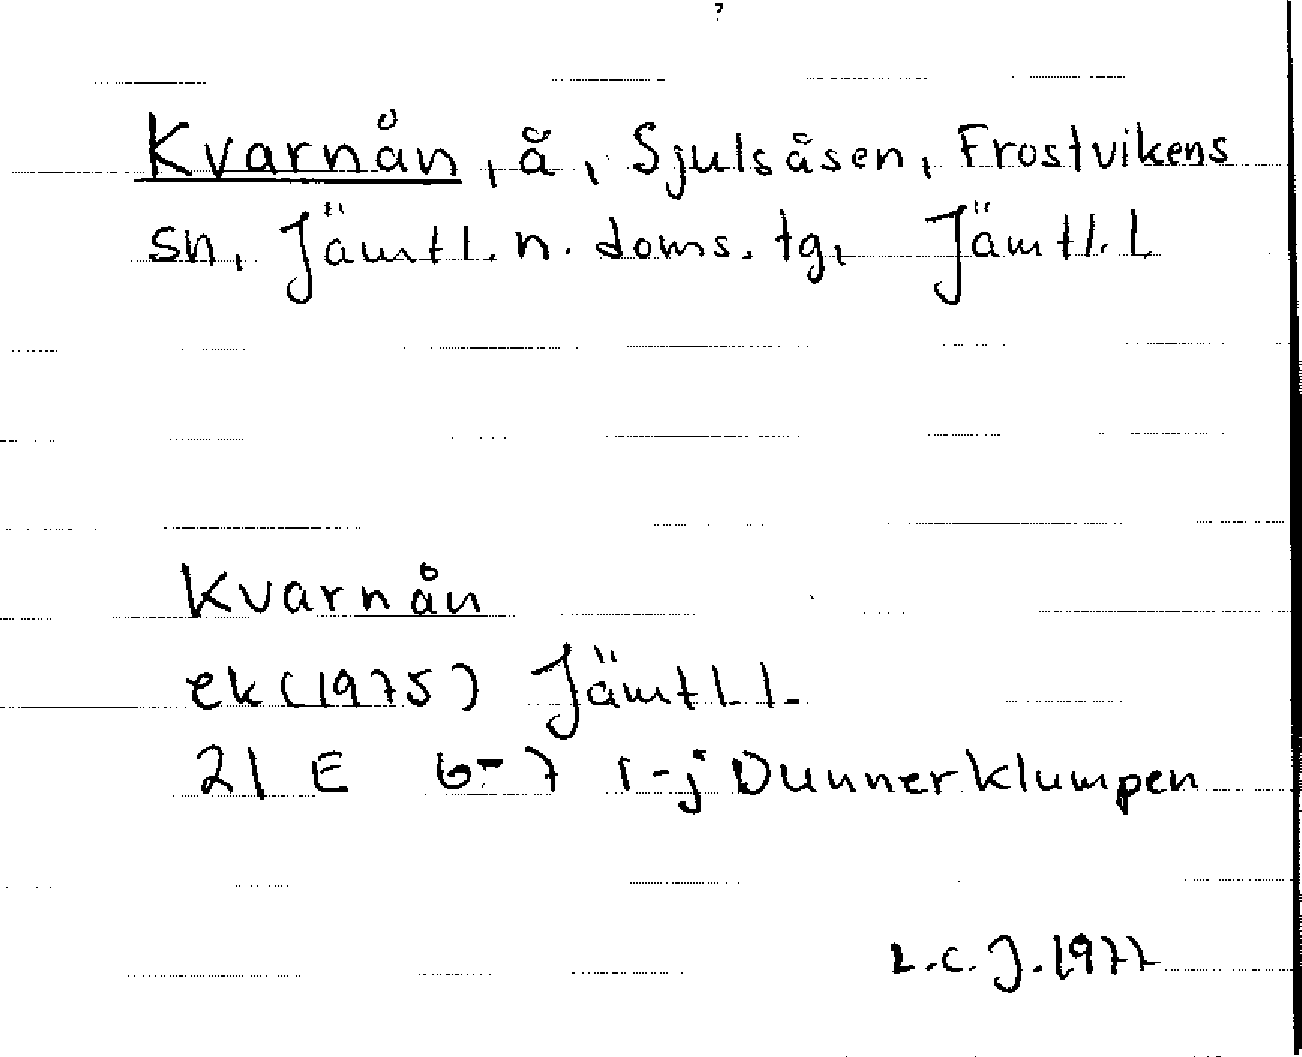 Kvarnån, å, Sjulsåsen, Frostvikens
sn, Jämtl. n. doms. tg, Jämtl. l
Kvarnån
ek (1975) Jämtl. l.
21 E 6-7 i-j Dunnerklumpen
L.C.J. 1977